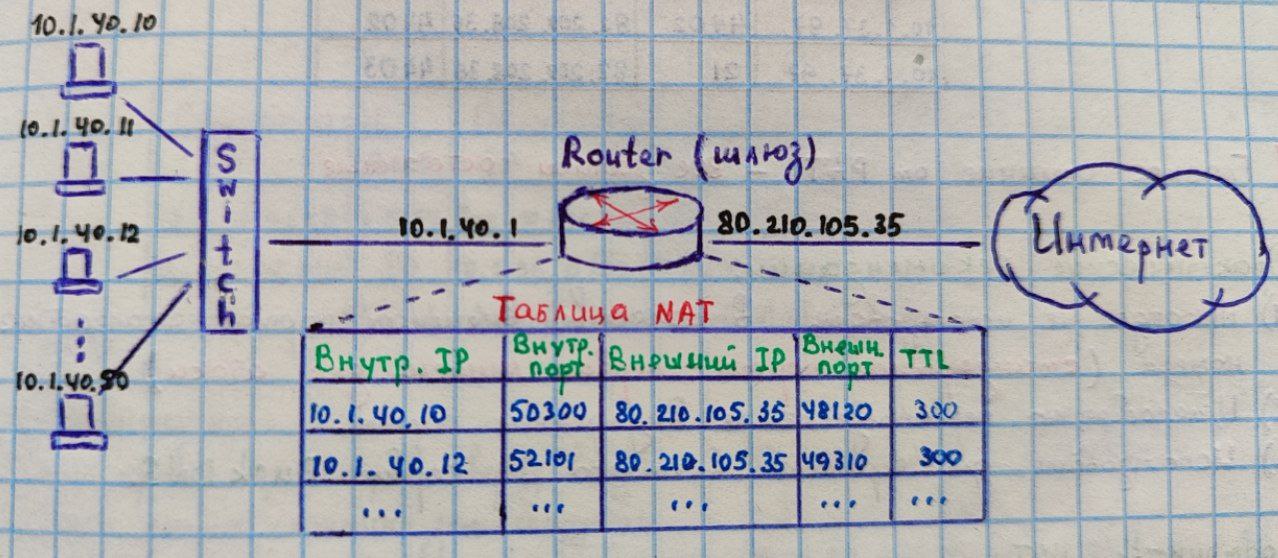 10.1.40.10
10.1.40.11
10.1.40.12
10.1.40.50
Switch
Router (шлюз)
10.1.40.1
80.210.105.35
Интернет
Таблица NAT
Внутр. IP Внутр. порт Внешний IP Внешн. порт TTL
10.1.40.10 50300 80.210.105.35 48120 300
10.1.40.12 52101 80.210.105.35 49310 300
... ... ... ... ...